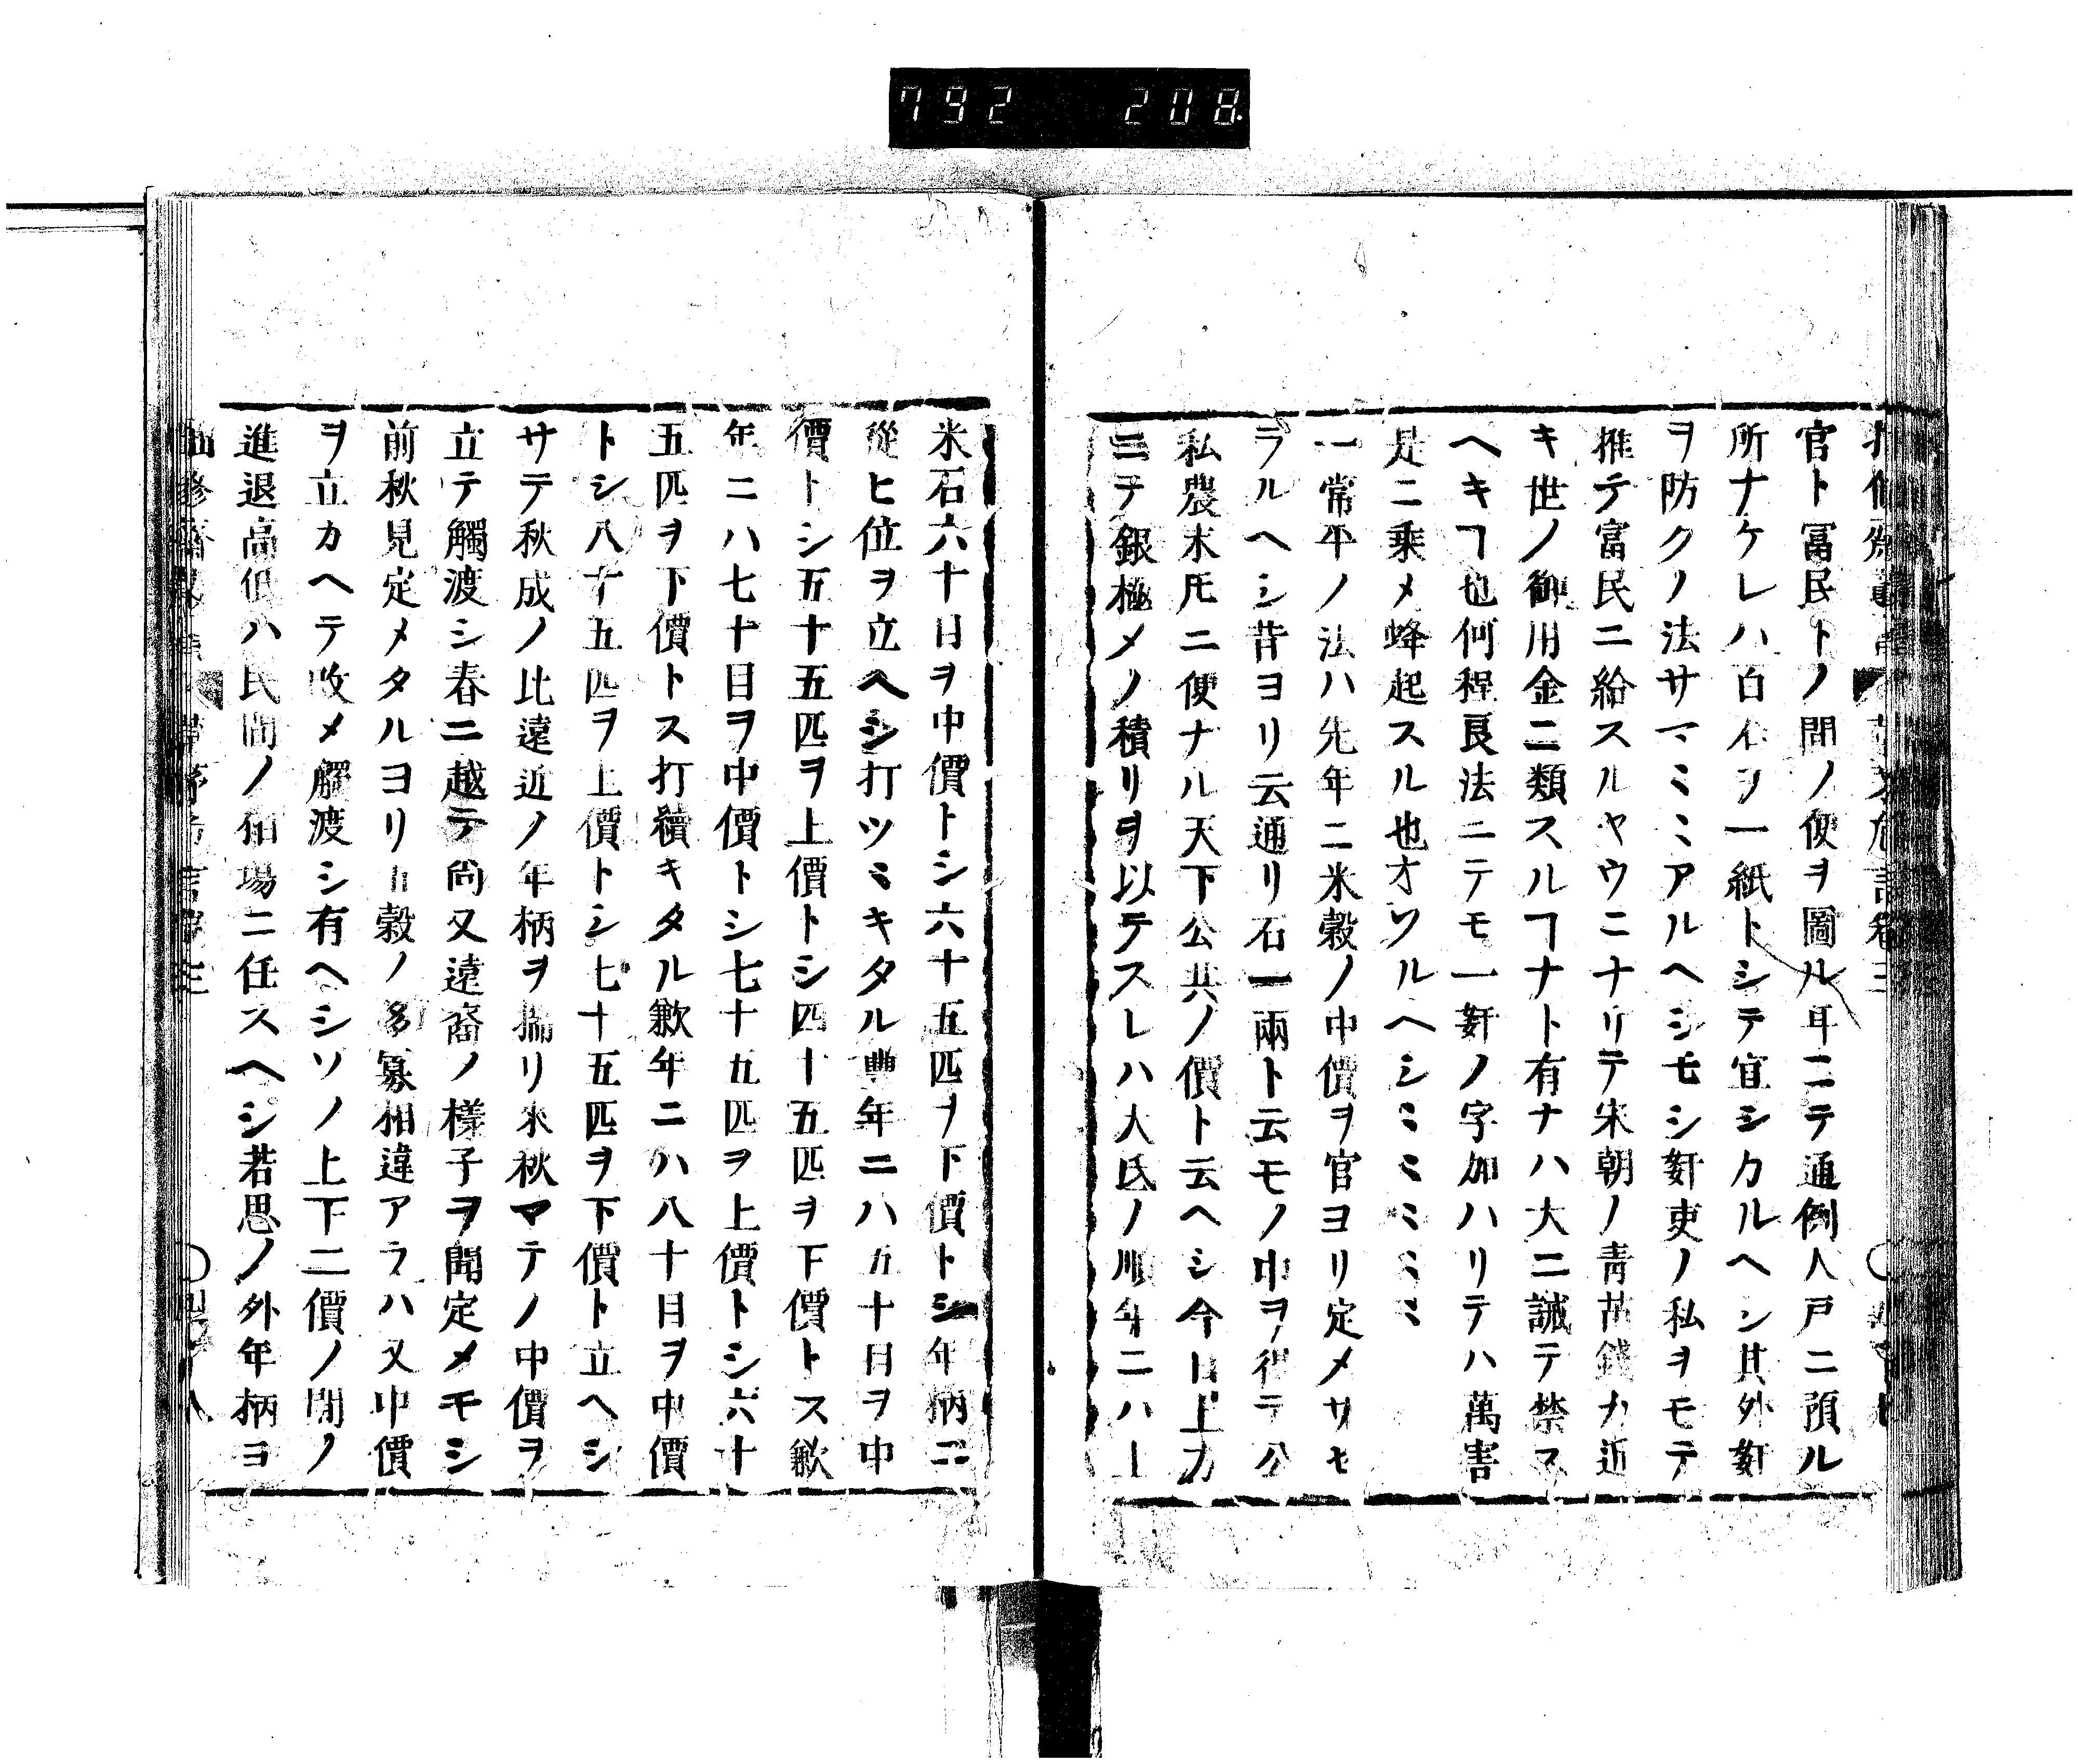 792 208
官ト冨民トノ間ノ便ヲ圖ル耳ニテ通例人戸ニ預ル
所ナケレハ百石ヲ一紙トシテ宜シカルヘシ其外姧
ヲ防クノ法サマミミアルヘシモシ姧吏ノ私ヲモテ
推テ富民ニ給スルヤウニナリテ宋朝ノ靑苗錢カ近
キ世ノ御用金ニ類スルヿナト有ナハ大ニ誡テ禁ス
ヘキヿ也何程良法ニテモ一姧ノ字加ハリテハ萬害
是ニ乗メ蜂起スル也オソルヘシミミミミミ
一常平ノ法ハ先年ニ米穀ノ中價ヲ官ヨリ定メサセ
ラルヘシ昔ヨリ云通リ石一兩ト云モノ中ヲ得テ公
私農末𪜈ニ便ナル天下公共ノ價ト云ヘシ今日上方
ニテ銀極メノ積リヲ以テスレハ大氐ノ順年ニハ一
米石六十目ヲ中價トシ六十五匹ヲ下價トシ年柄ニ
從ヒ位ヲ立ヘシ打ツミキタル豊年ニハ五十目ヲ中
價トシ五十五匹ヲ上價トシ四十五匹ヲ下價トス歉
年ニハ七十目ヲ中價トシ七十五匹ヲ上價トシ六十
五匹ヲ下價トス打續キタル歉年ニハ八十目ヲ中價
トシ八十五匹ヲ上價トシ七十五匹ヲ下價ト立ヘシ
サテ秋成ノ比遠近ノ年柄ヲ揣リ來秋マテノ中價ヲ
立テ觸渡シ春ニ越テ尙又遠裔ノ樣子ヲ聞定メモシ
前秋見定メタルヨリ五穀ノ多寡相違アラハ又中價
ヲ立カヘテ改メ觸渡シ有ヘシソノ上下二價ノ間ノ
進退高低ハ民間ノ相場ニ任スヘシ若思ノ外年柄ヨ